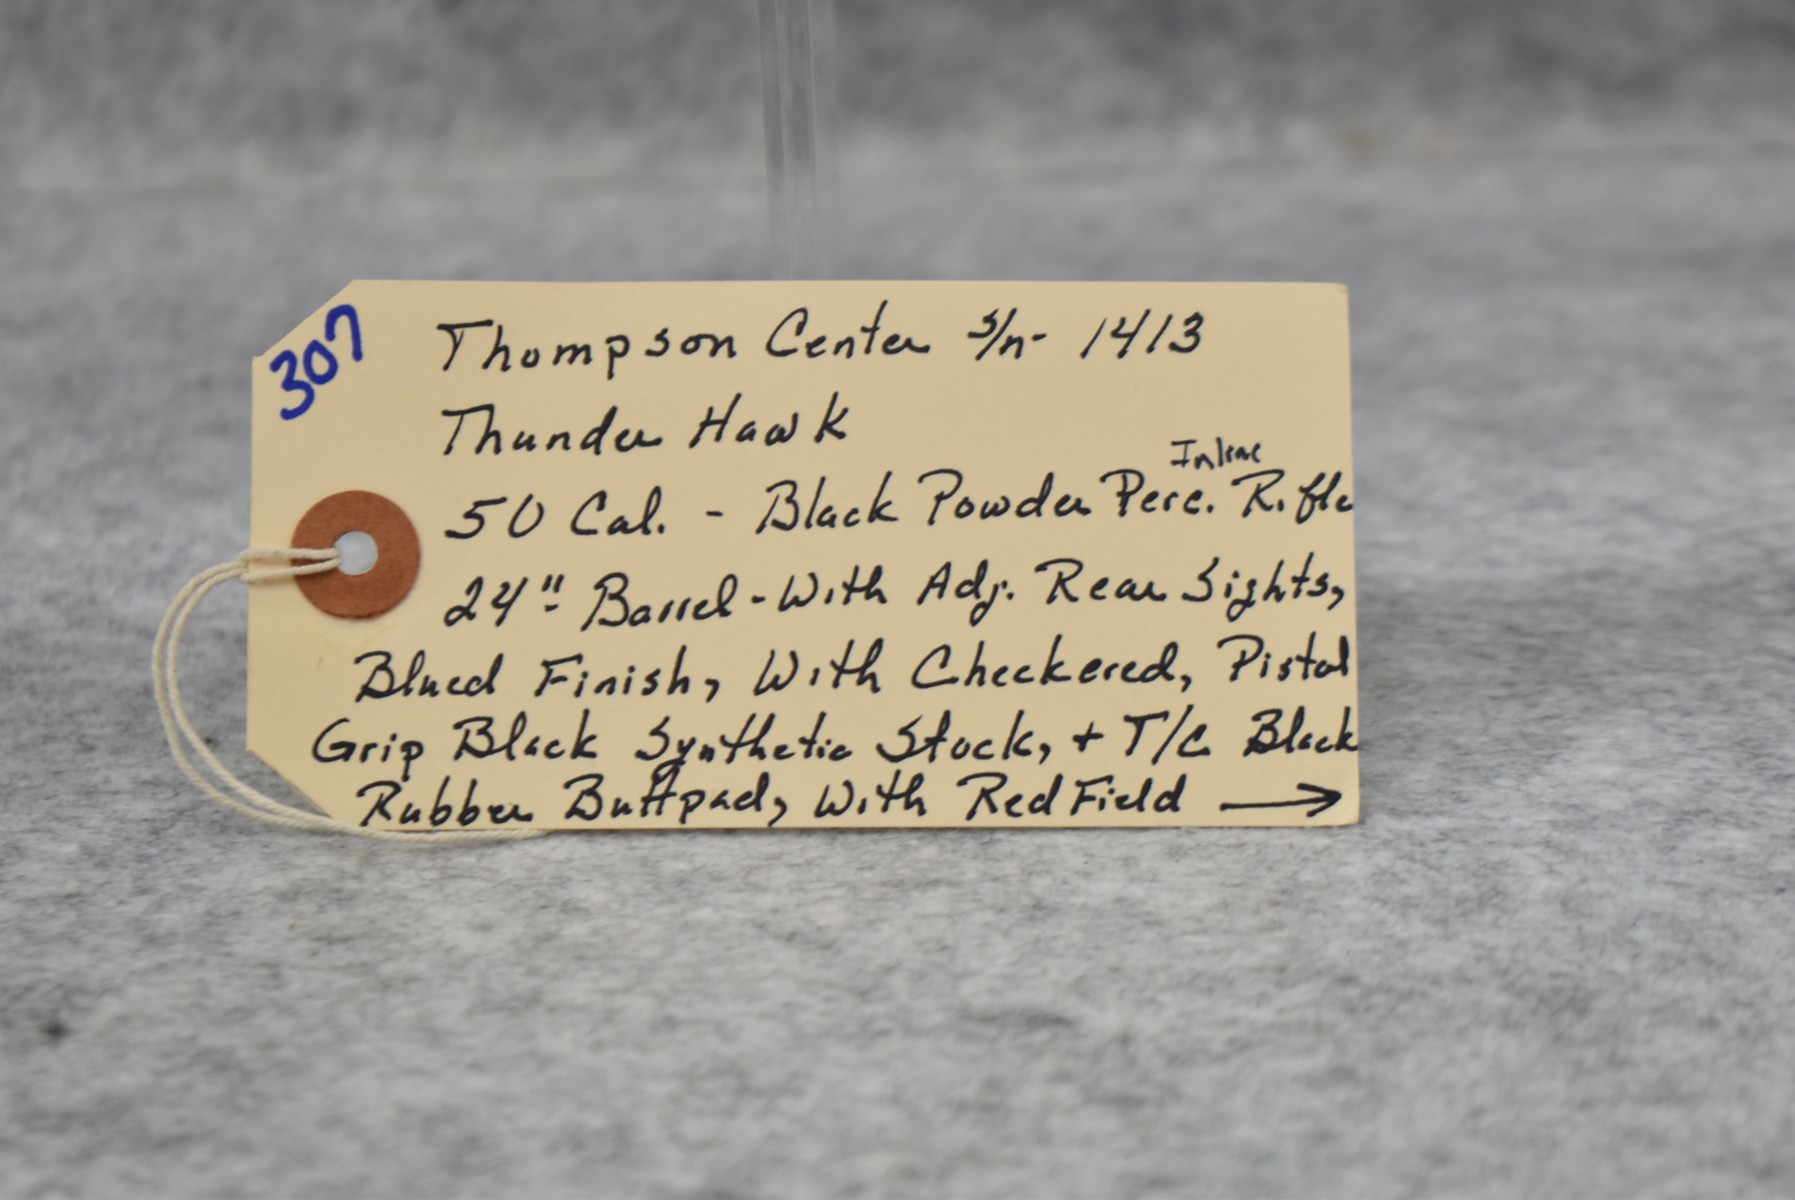 307
Thompson Center s/n- 1413
Thunder Hawk
Inline
50 Cal. - Black Powder Perc. Rifle
24" Barrel - With Adj. Rear Sights,
Blued Finish, With Checkered, Pistol
Grip Black Synthetic Stock, + T/C Black
Rubber Buttpad, With RedField →